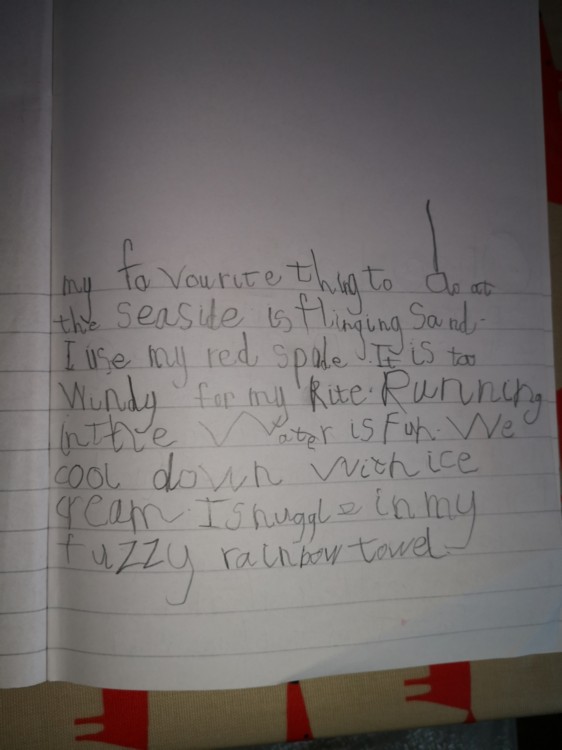 my favourite thing to do at
the seaside is flinging sand.
I use my red spade. It is too
windy for my kite. Running
in the Water is fun. We
cool down with ice
cream. I snuggle in my
fuzzy rainbow towel.